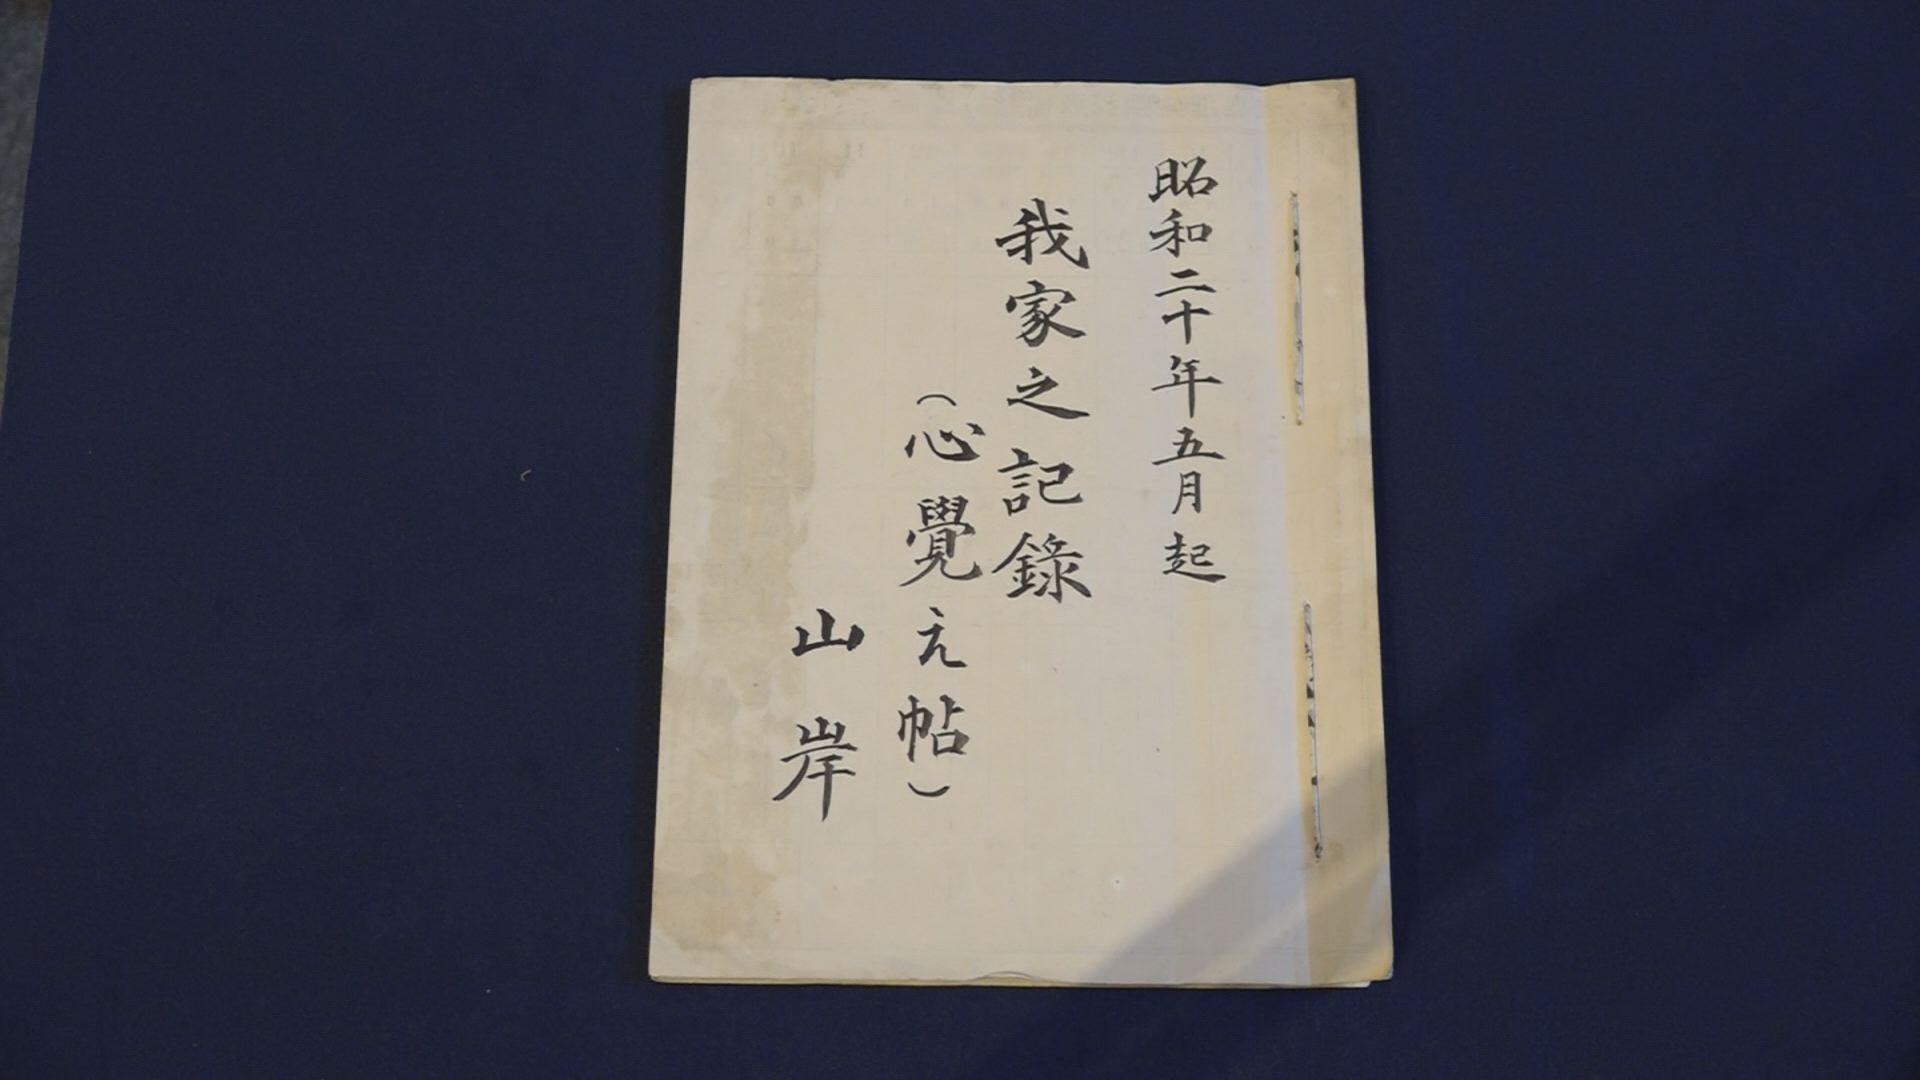 昭和二十年五月起
我家之記録
（心覺え帖）
山岸